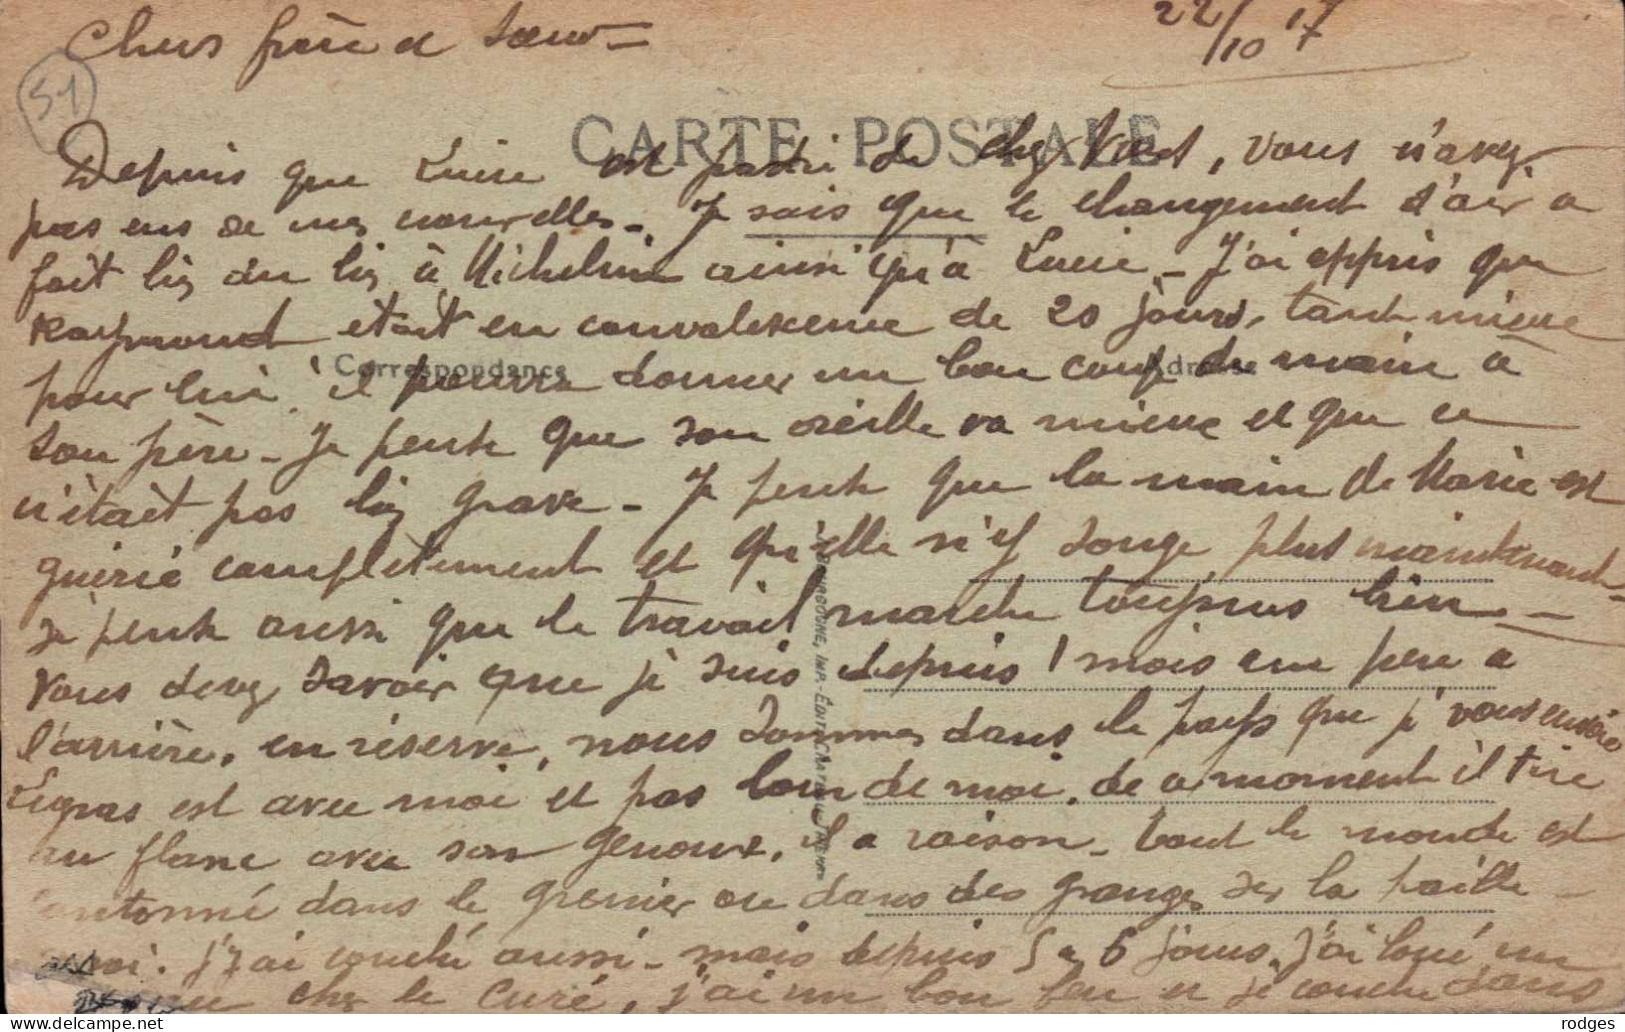 22/10 17
Chers frère et Sœur—
51
CARTE POSTALE
Depuis que Lucie est parti de chez Vous, vous n'avez
pas eus de mes nouvelles—. Je sais que le changement d'air a
fait bien du bien à Micheline ainsi qu'à Lucie— J'ai appris que
Raymond était en convalescence de 20 jours, tant mieux
Correspondance
Adresse
pour lui, il pourra donner un bon coup de main à
son père— Je pense que son oreille va mieux et que ce
n'était pas bien grave— Je pense que la main de Marie est
guérie complètement et qu'elle n'y songe plus maintenant—
Je pense aussi que le travail marche toujours bien—
Vous devez savoir que je suis depuis 1 mois un peu a
l'arrière, en réserve, nous sommes dans le pays que j'vous envoie
Legras est avec moi et pas loin de moi, de ce moment il tire
au flanc avec son genoux, il a raison— tout le monde est
cantonné dans le grenier ou dans des granges sur la paille—
moi. j'y ai couché aussi— mais depuis 5 a 6 jours, j'ai loué un
chez le Curé, j'ai un bon feu et je couche dans
BOURGOGNE, IMP.-ÉDIT. CHATEAU
rodges
delcampe.net